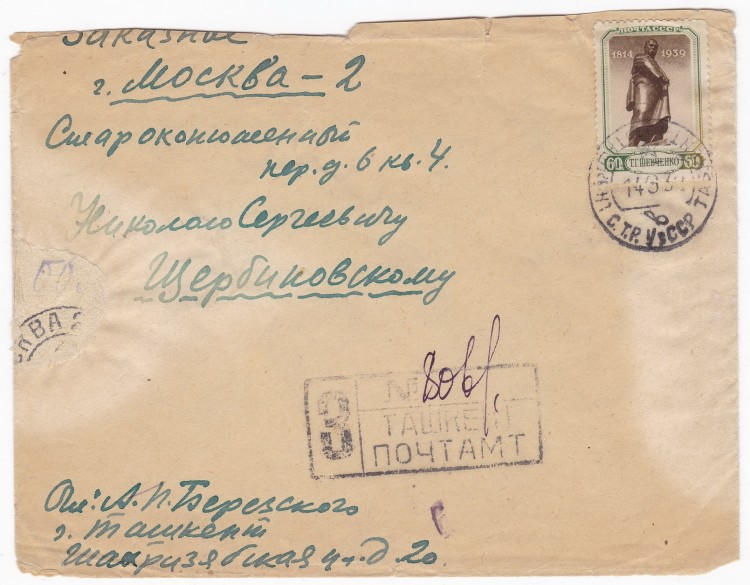 Заказное
г. Москва - 2
Староконюшенный
пер. д. 6 кв. 4.
Николаю Сергеевичу
Щербиновскому
ПОЧТА СССР
1814 1939
60 Т.Г. ШЕВЧЕНКО 60
С.Т.Р. УзССР
З
№
ТАШКЕНТ
ПОЧТАМТ
От: А. П. Березского
г. Ташкент
Шахризябская ул. д 20